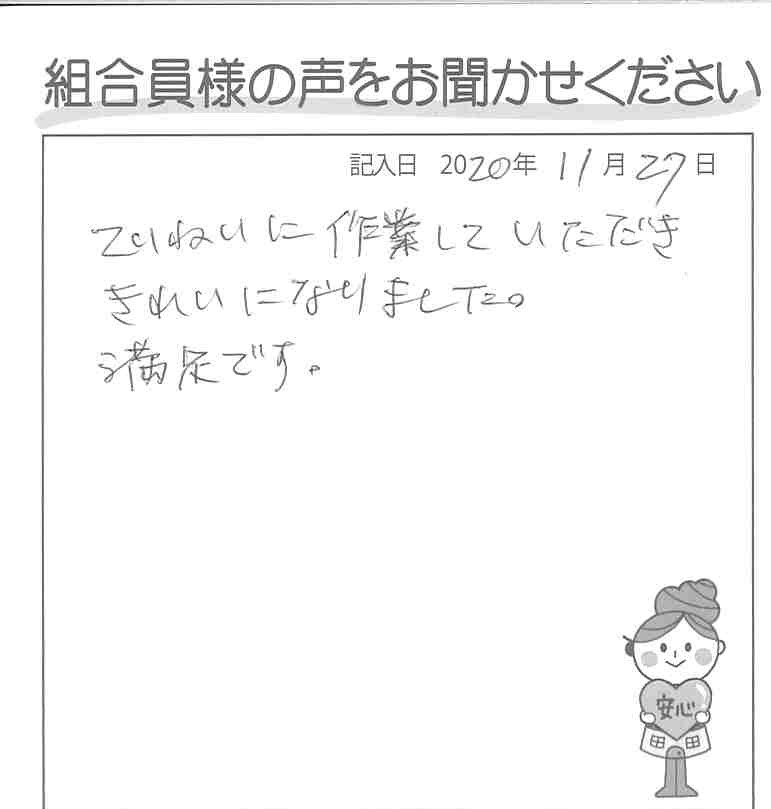 組合員様の声をお聞かせください
記入日 2020年 11月27日
ていねいに作業していただき
きれいになりました。
満足です。
安心